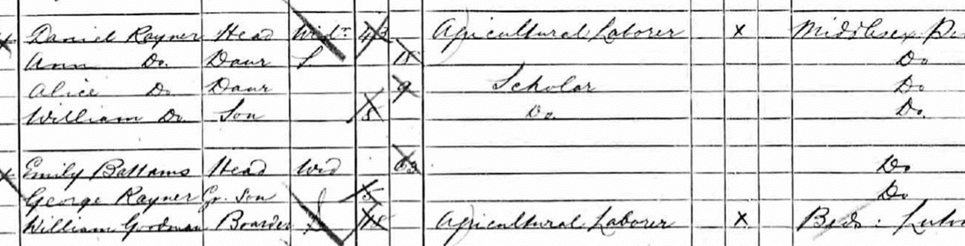 Daniel Rayner Head Widr 43 Agricultural Laborer x Middlesex
Ann Do Daur S. Do
Alice Do Daur 9 Scholar Do
William Do Son Do. Do.
Emily Battams Head Wid 63 Do
George Rayner Gr. Son Do
William Goodman Boarder 18 Agricultural Laborer x Beds: Luton